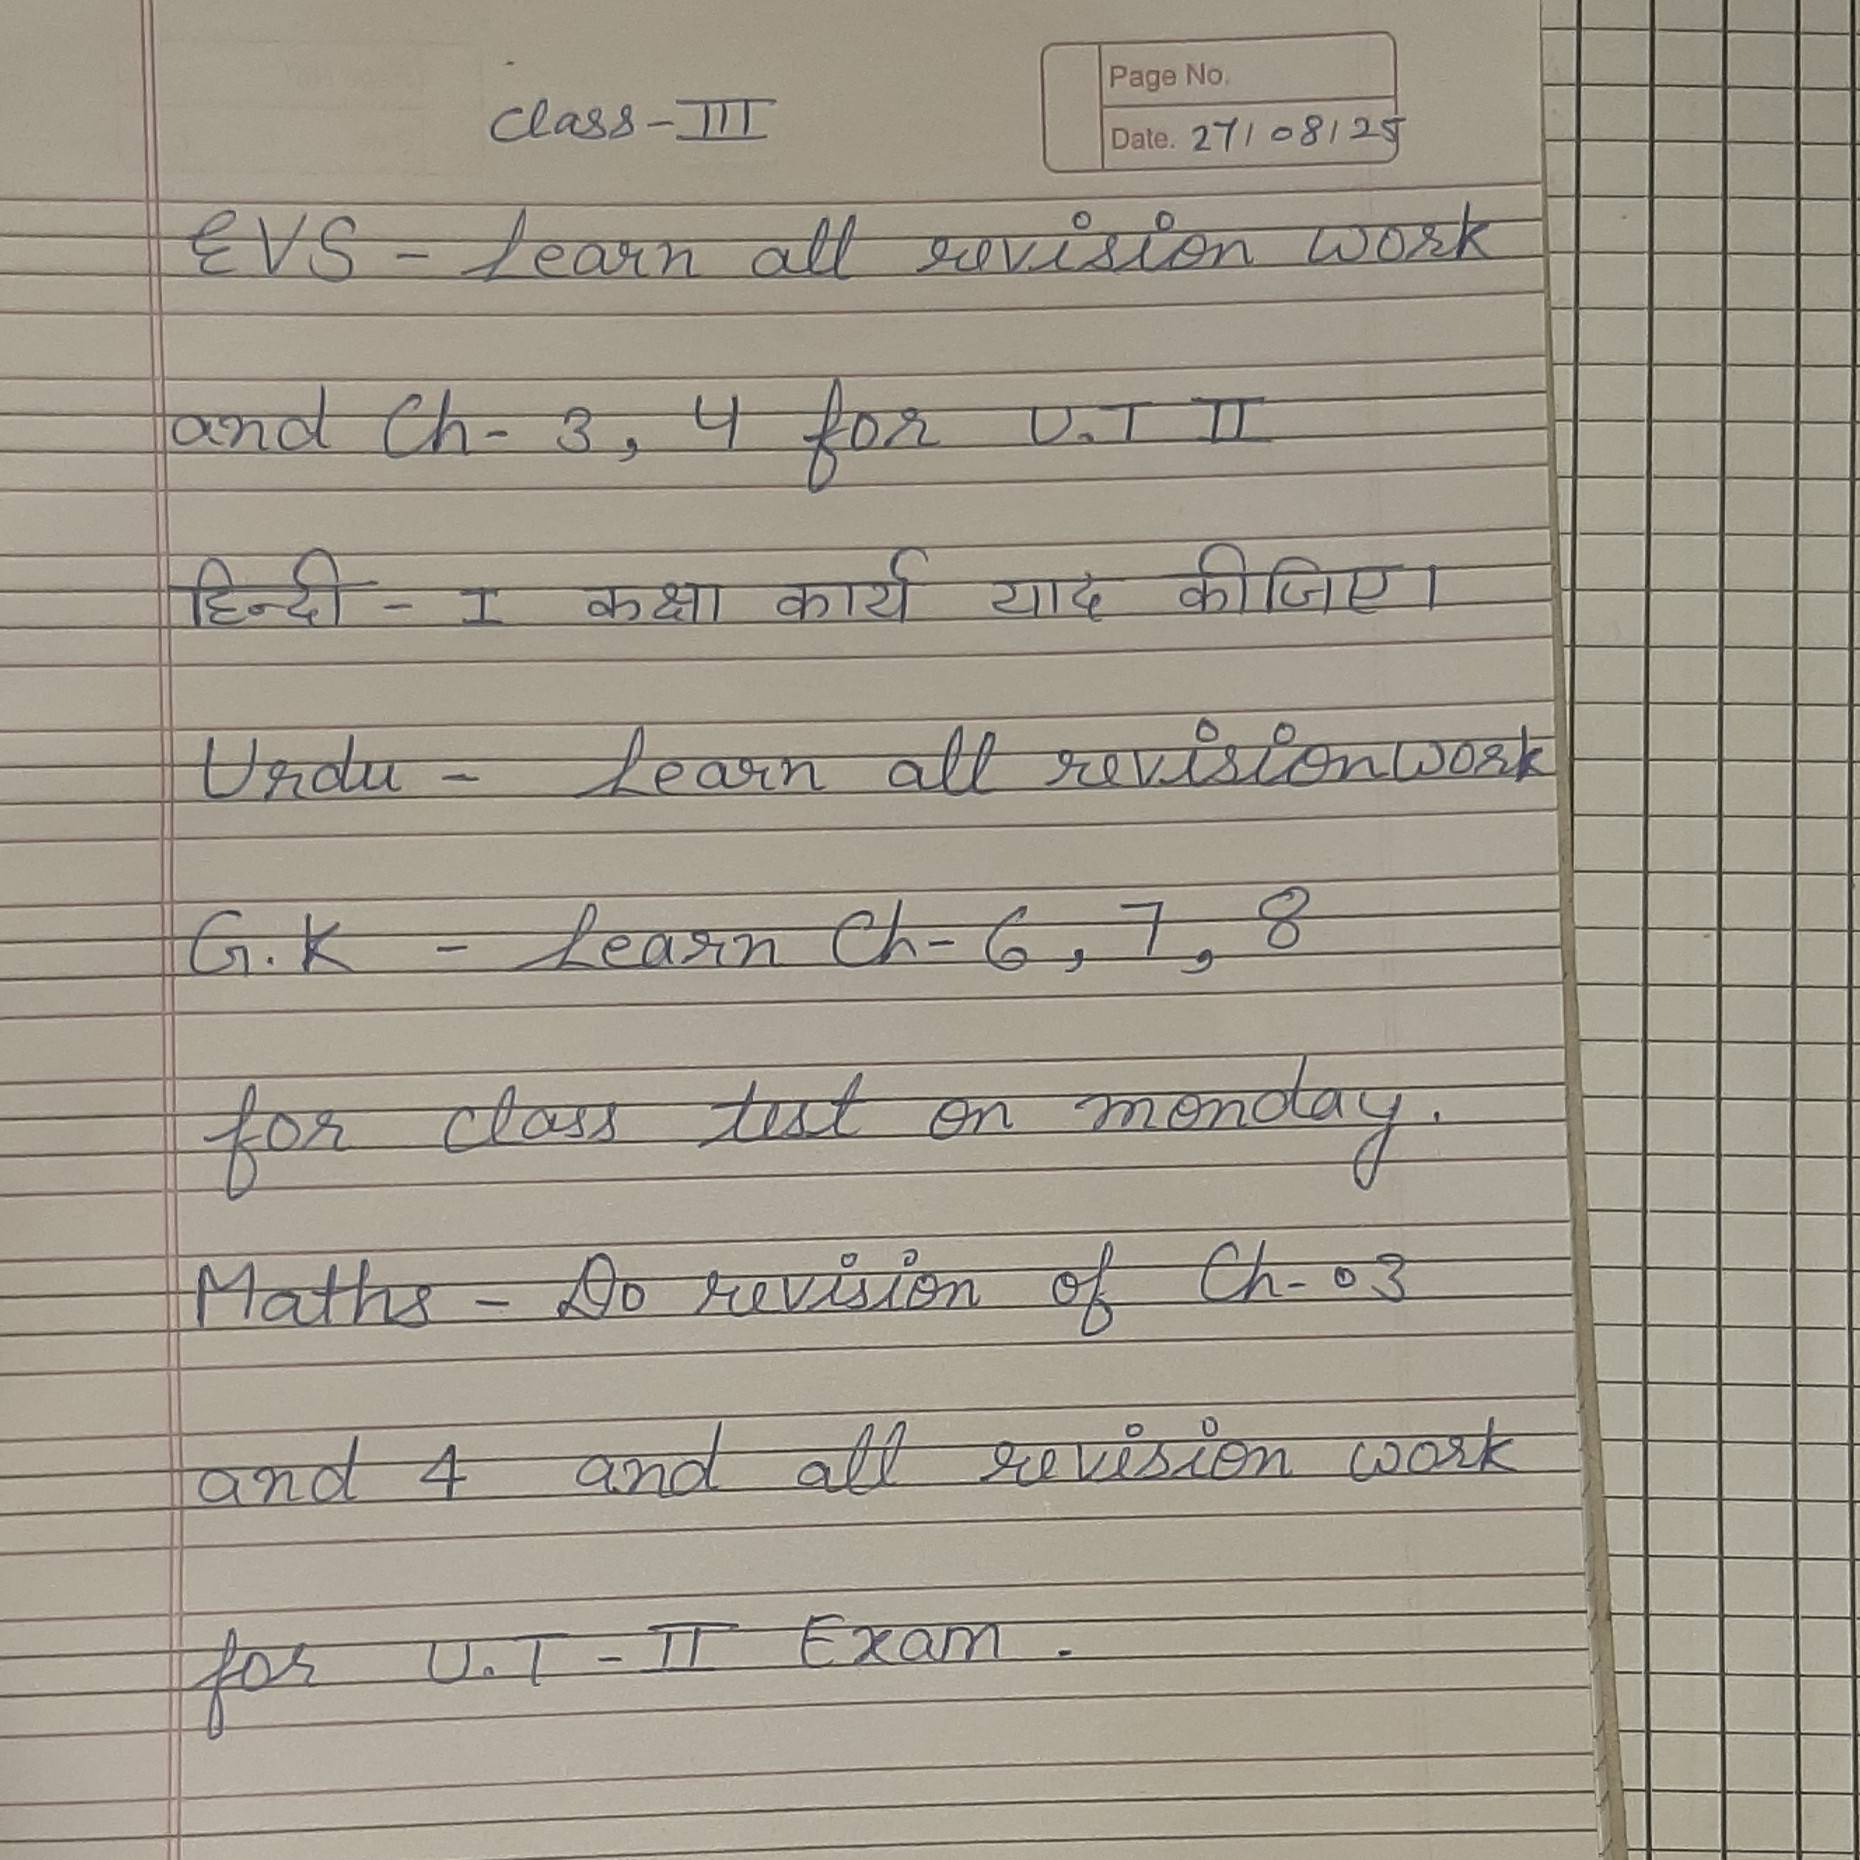 Class-III
Page No.
Date. 27/08/25
EVS - Learn all revision work
and Ch- 3, 4 for U.T II
हिन्दी - I कक्षा कार्य याद कीजिए।
Urdu - Learn all revision work
G.K - Learn Ch- 6, 7, 8
for class test on monday.
Maths - Do revision of Ch-03
and 4 and all revision work
for U.T - II Exam.